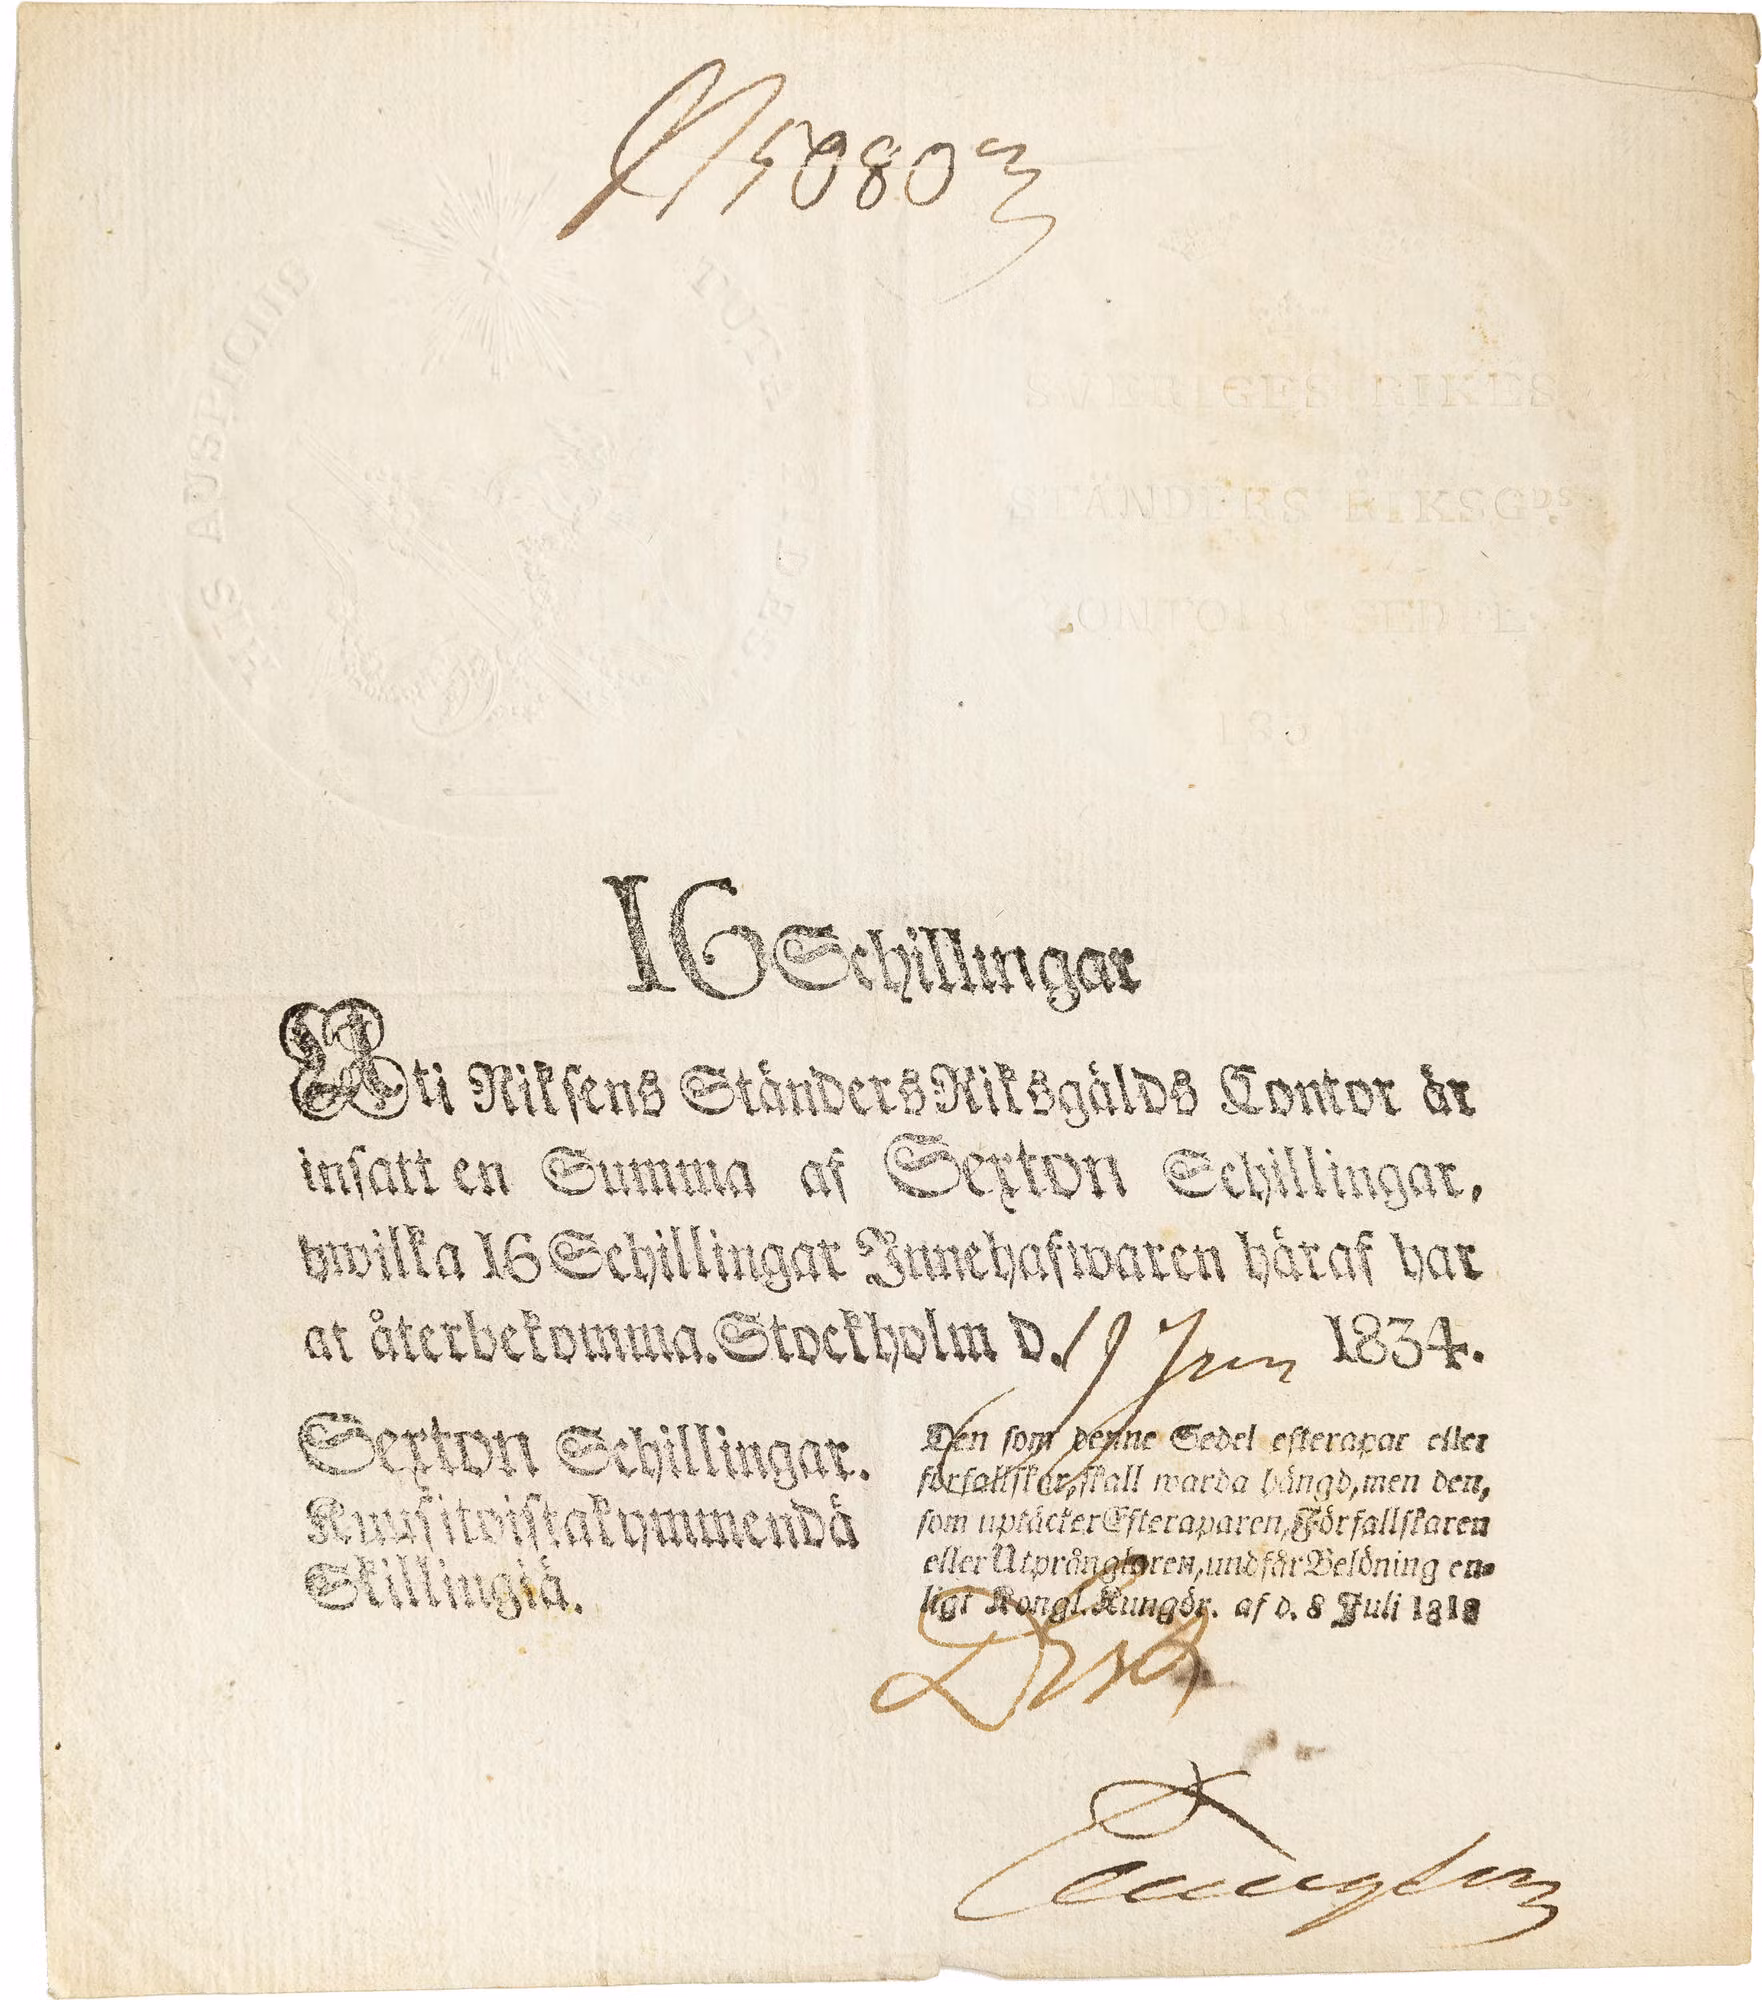 HIS AUSPICIIS
TUTE
SVERIGES RIKES
STÄNDERS RIKSGDS
CONTOIRS SEDEL
16 Schillingar
Uti Riksens Ständers Riksgälds Contor är
insatt en Summa af Sexton Schillingar,
hwilka 16 Schillingar Innehafwaren häraf har
at återbekomma. Stockholm d. 19 Juni 1834.
Sexton Schillingar.
Kuusitoistakymmendä
Skillingiä.
Den som denne Sedel efterapar eller
förfalskar, skall warda hängd, men den,
som uptäcker Efteraparen, Förfallskaren
eller Utprånglaren, undfår Belöning en-
ligt Kongl. Kungör. af d. 8 Juli 1818